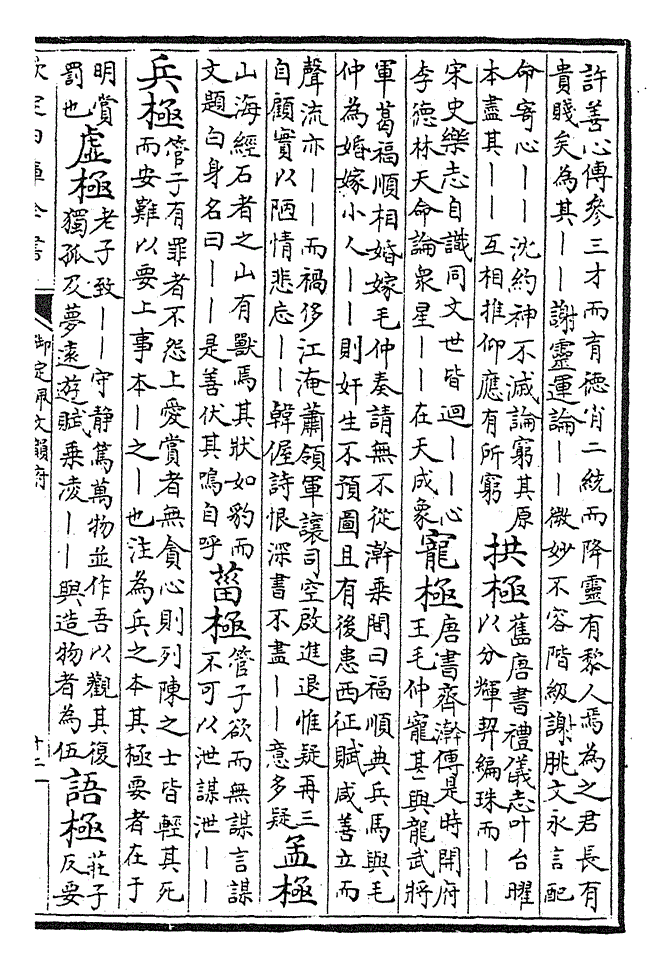 許善心傳參三才而育德肖二統而降靈有黎人焉為之君長有
貴賤矣為其——謝靈運論——微妙不容階級謝朓文永言配
命寄心——沈約神不滅論窮其原
本盡其——互相推仰應有所窮
拱極
舊唐書禮儀志叶台曜
以分輝羿編珠而——
宋史樂志自識同文世皆迴——心
李德林天命論衆星——在天成象
寵極
唐書齊澣傳是時開府
王毛仲寵甚與龍武將
軍葛福順相婚嫁毛仲奏請無不從澣乘間曰福順典兵馬與毛
仲為婚嫁小人——則奸生不預圖且有後患西征賦咸善立而
聲流亦——而禍侈江淹蕭領軍讓司空啟進退惟疑再三
自顧實以陋情悲忘——韓偓詩恨深書不盡——意多疑
孟極
山海經石者之山有獸焉其狀如豹而
文題白身名曰——是善伏其鳴自呼
菑極
管子欲而無謀言謀
不可以泄謀泄——
兵極
管子有罪者不怨上愛賞者無貪心則列陳之士皆輕其死
而安難以要上事本—之—也注為兵之本其極要者在于
明賞
罰也
虛極
老子致——守静篤萬物並作吾以觀其復
獨孤及夢遠遊賦乘凌——與造物者為伍
語極
莊子
反要
欽定四庫全書
御定佩文韻府
十二